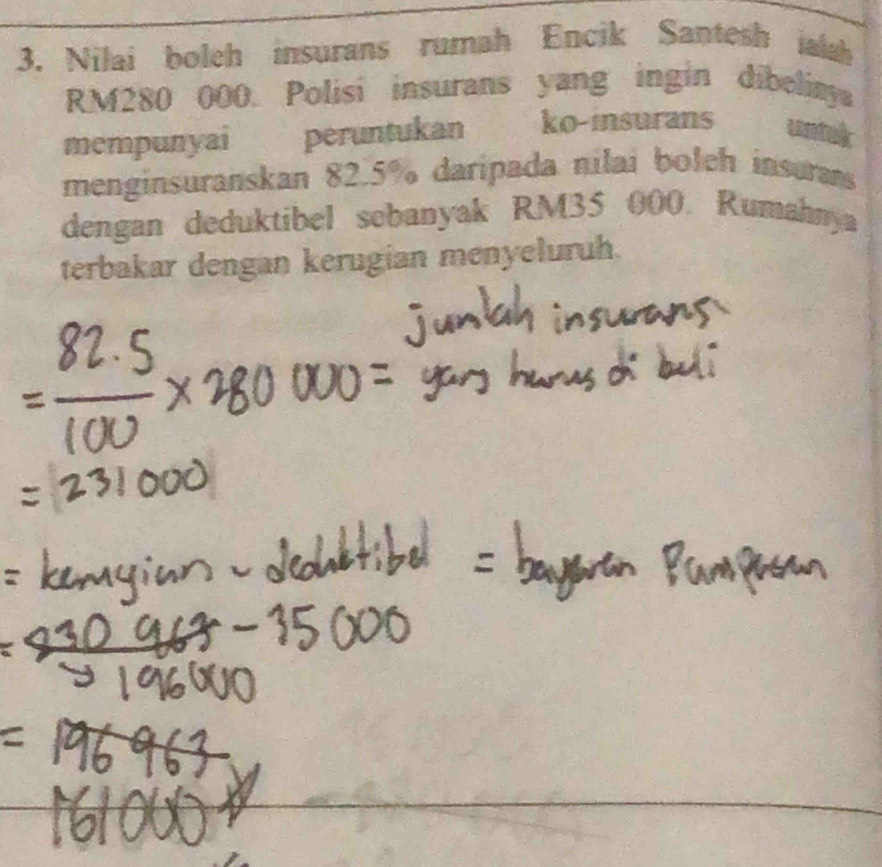 3. Nilai boleh insurans rumah Encik Santesh ialah
RM280 000. Polisi insurans yang ingin dibelinya
mempunyai peruntukan ko-insurans untuk
menginsuranskan 82.5% daripada nilai boleh insurans
dengan deduktibel sebanyak RM35 000. Rumahnya
terbakar dengan kerugian menyeluruh.
jumlah insurans
= 82.5/100 × 280 000 = yang harus di beli
= 231000
= kerugian - deduktibel = bayaran Pampasan
= 230 963 - 35000
→ 196000
= 196 963
161000